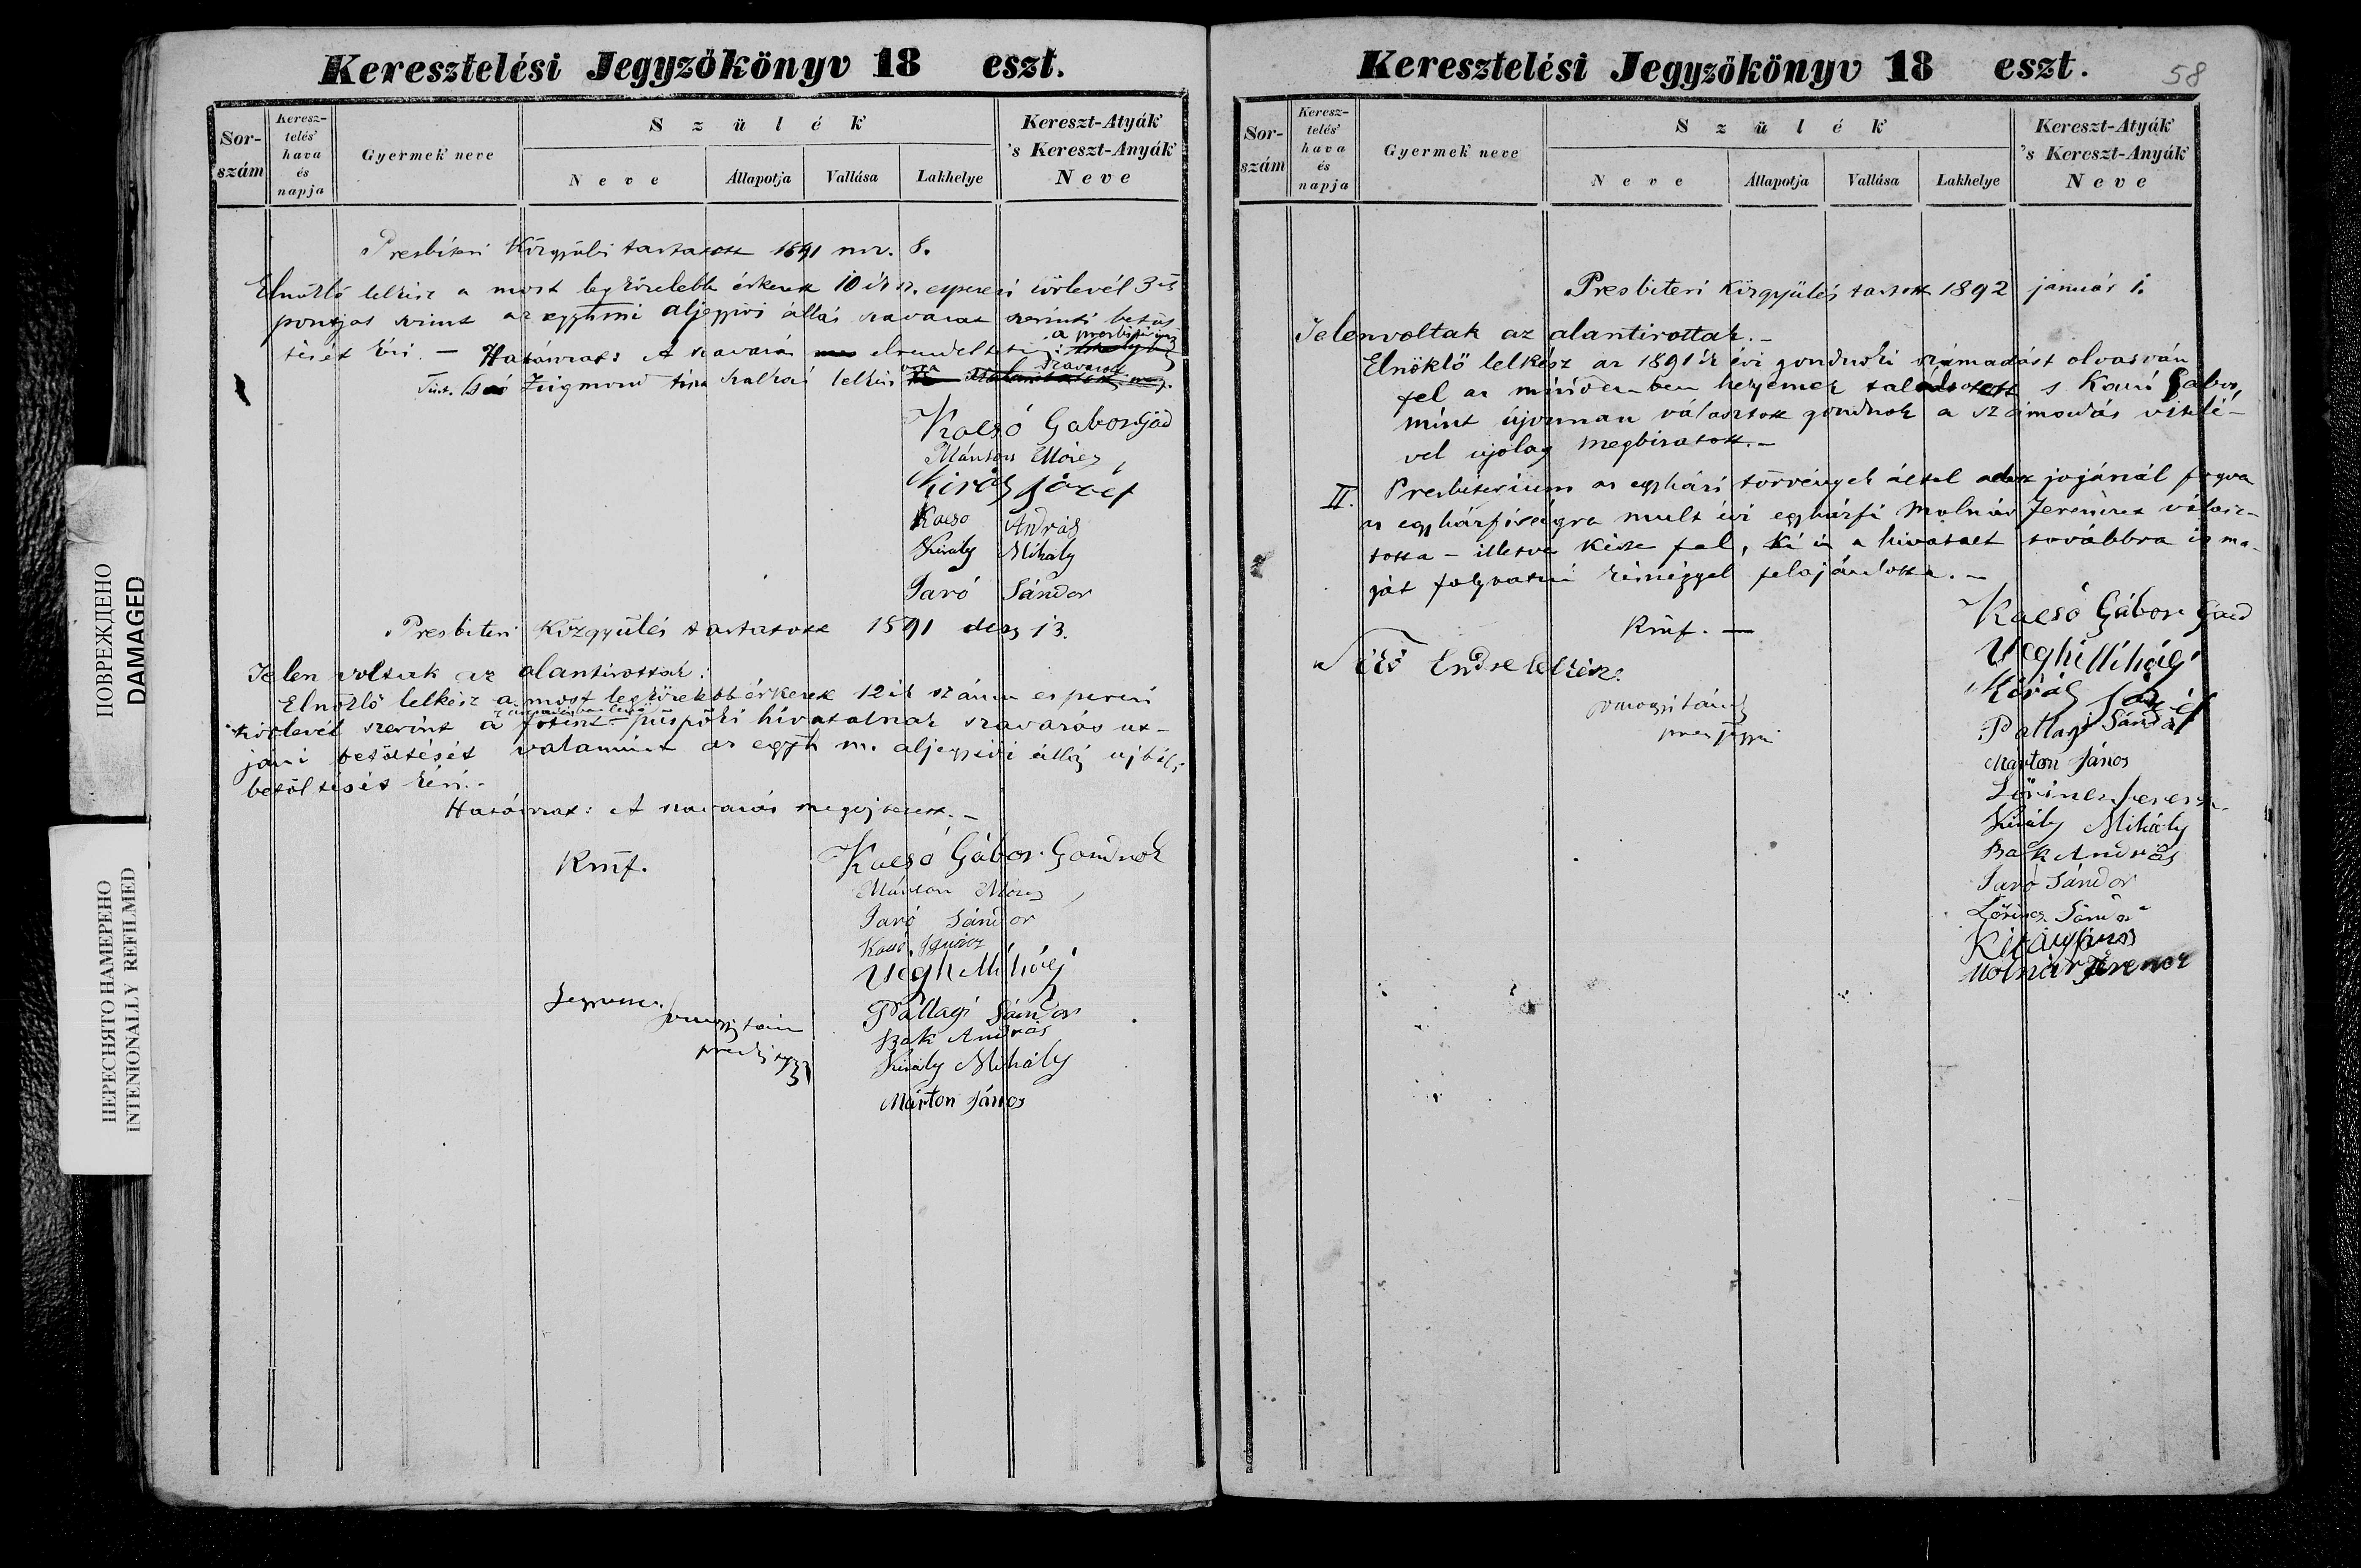 Keresztelési Jegyzökönyv 18 eszt.
Sor-
szám
Keresz-
telés'
hava
és
napja
Gyermek neve
Szülék
Neve
Állapotja
Vallása
Lakhelye
Kereszt-Atyák
's Kereszt-Anyák
Neve
Presbiteri Közgyülés tartatott 1891 nov. 8.
Elnöklő lelkész a most legközelebb érkezett 10 ik sz. esperesi körlevél 3 ik
pontjai szerint az egyhmi aljegyzői állás szavazat szerinti betöl
tését kéri. — Határozat: A szavazás elrendeltetik a presbiterium
Zsigmond lelkész szavazott
Kacsó Gabor God
Márton Móres
Király József
Kacso András
Király Mihaly
Jaró Sándor
Presbiteri Közgyülés tartatott 1891 decz 13.
Jelen voltak az alantirottak:
Elnöklő lelkész a most legközelebb érkezett 12 ik számu esperesi
körlevél szerint a püspöki hivatalnak szavazás ut-
jáni betöltését valamint az egyh m. aljegyzői állás ujbóli
betöltését kéri.-
Határozat: A szavazás megejtetett. —
Kmf.
Kacsó Gábor Gondnok
Márton Móres
Jaró Sándor
Kacsó Ignácz
Vegh Miháj
Pallagi Sándor
Bak András
Király Mihály
Márton János
Keresztelési Jegyzökönyv 18 eszt.
58
Sor-
szám
Keresz-
telés'
hava
és
napja
Gyermek neve
Szülék
Neve
Állapotja
Vallása
Lakhelye
Kereszt-Atyák
's Kereszt-Anyák
Neve
Presbiteri Közgyülés tartott 1892 január 1.
Jelenvoltak az alantirottak. —
Elnöklő lelkész az 1891 ik évi gondnoki számadást olvasván
fel az mindenben helyesnek találtatott s Kacsó Gabor,
mint újonnan választott gondnok a számadás vitelé-
vel ujolag megbizatott. —
II. Presbiterium az egyházi törvények által adott jogánál fogva
az egyházfiságra mult évi egyházfi Molnár Ferenczet válasz-
totta - illetve kérte fel, ki is a hivatalt továbbra is ma-
gát folytatni készséggel felajánlotta. —
Kmf. —
Endre lelkész.
Kacsó Gábor Gond
Vegh Miháj
Király József
Pallagi Sándor
Marton János
Lőrincz Ferencz
Király Mihály
Bak András
Jaró Sándor
Lőrincz Sándor
Király János
Molnár Ferencz
ПОВРЕЖДЕНО
DAMAGED
ПЕРЕСНЯТО НАМЕРЕНО
INTENIONALLY REFILMED